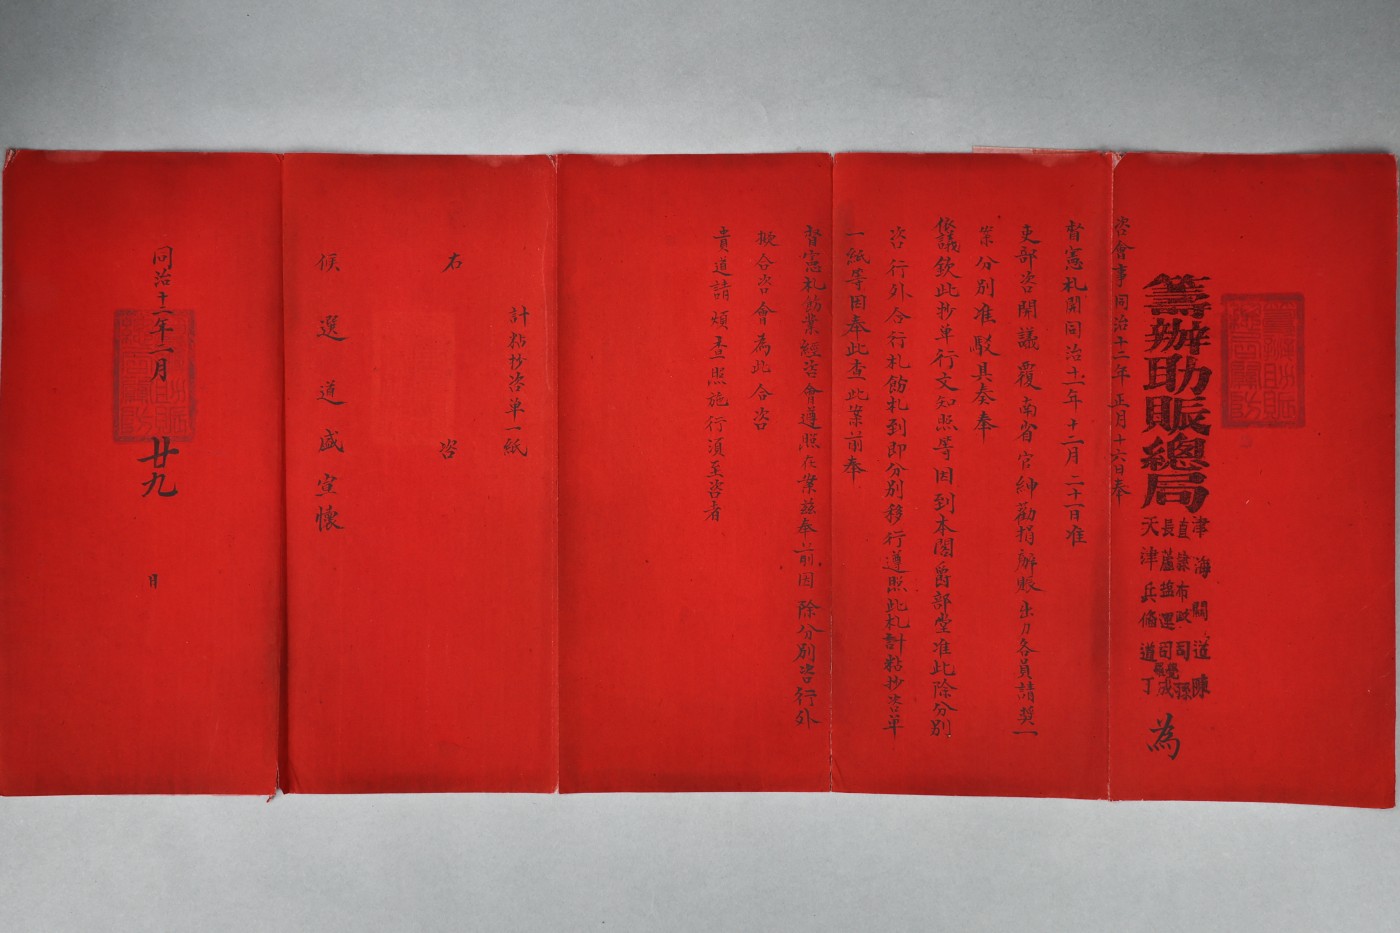 籌辦助賑總局
津海關道陳
直隸布政司孫
長蘆鹽運司成
天津兵備道丁
為
咨會事同治十二年正月十六日奉
督憲札開同治十一年十二月二十一日准
吏部咨開議覆南省官紳勸捐辦賑出力各員請獎一
案分別准駁具奏奉
依議欽此抄单行文知照等因到本閣爵部堂准此除分別
咨行外合行札飭札到即分別移行遵照此札計粘抄咨单
一紙等因奉此查此案前奉
督憲札飭業經咨會遵照在案茲奉前因除分別咨行外
擬合咨會為此合咨
貴道請煩查照施行須至咨者
計粘抄咨单一紙
右
咨
候選道盛宣懷
同治十二年二月
廿九
日